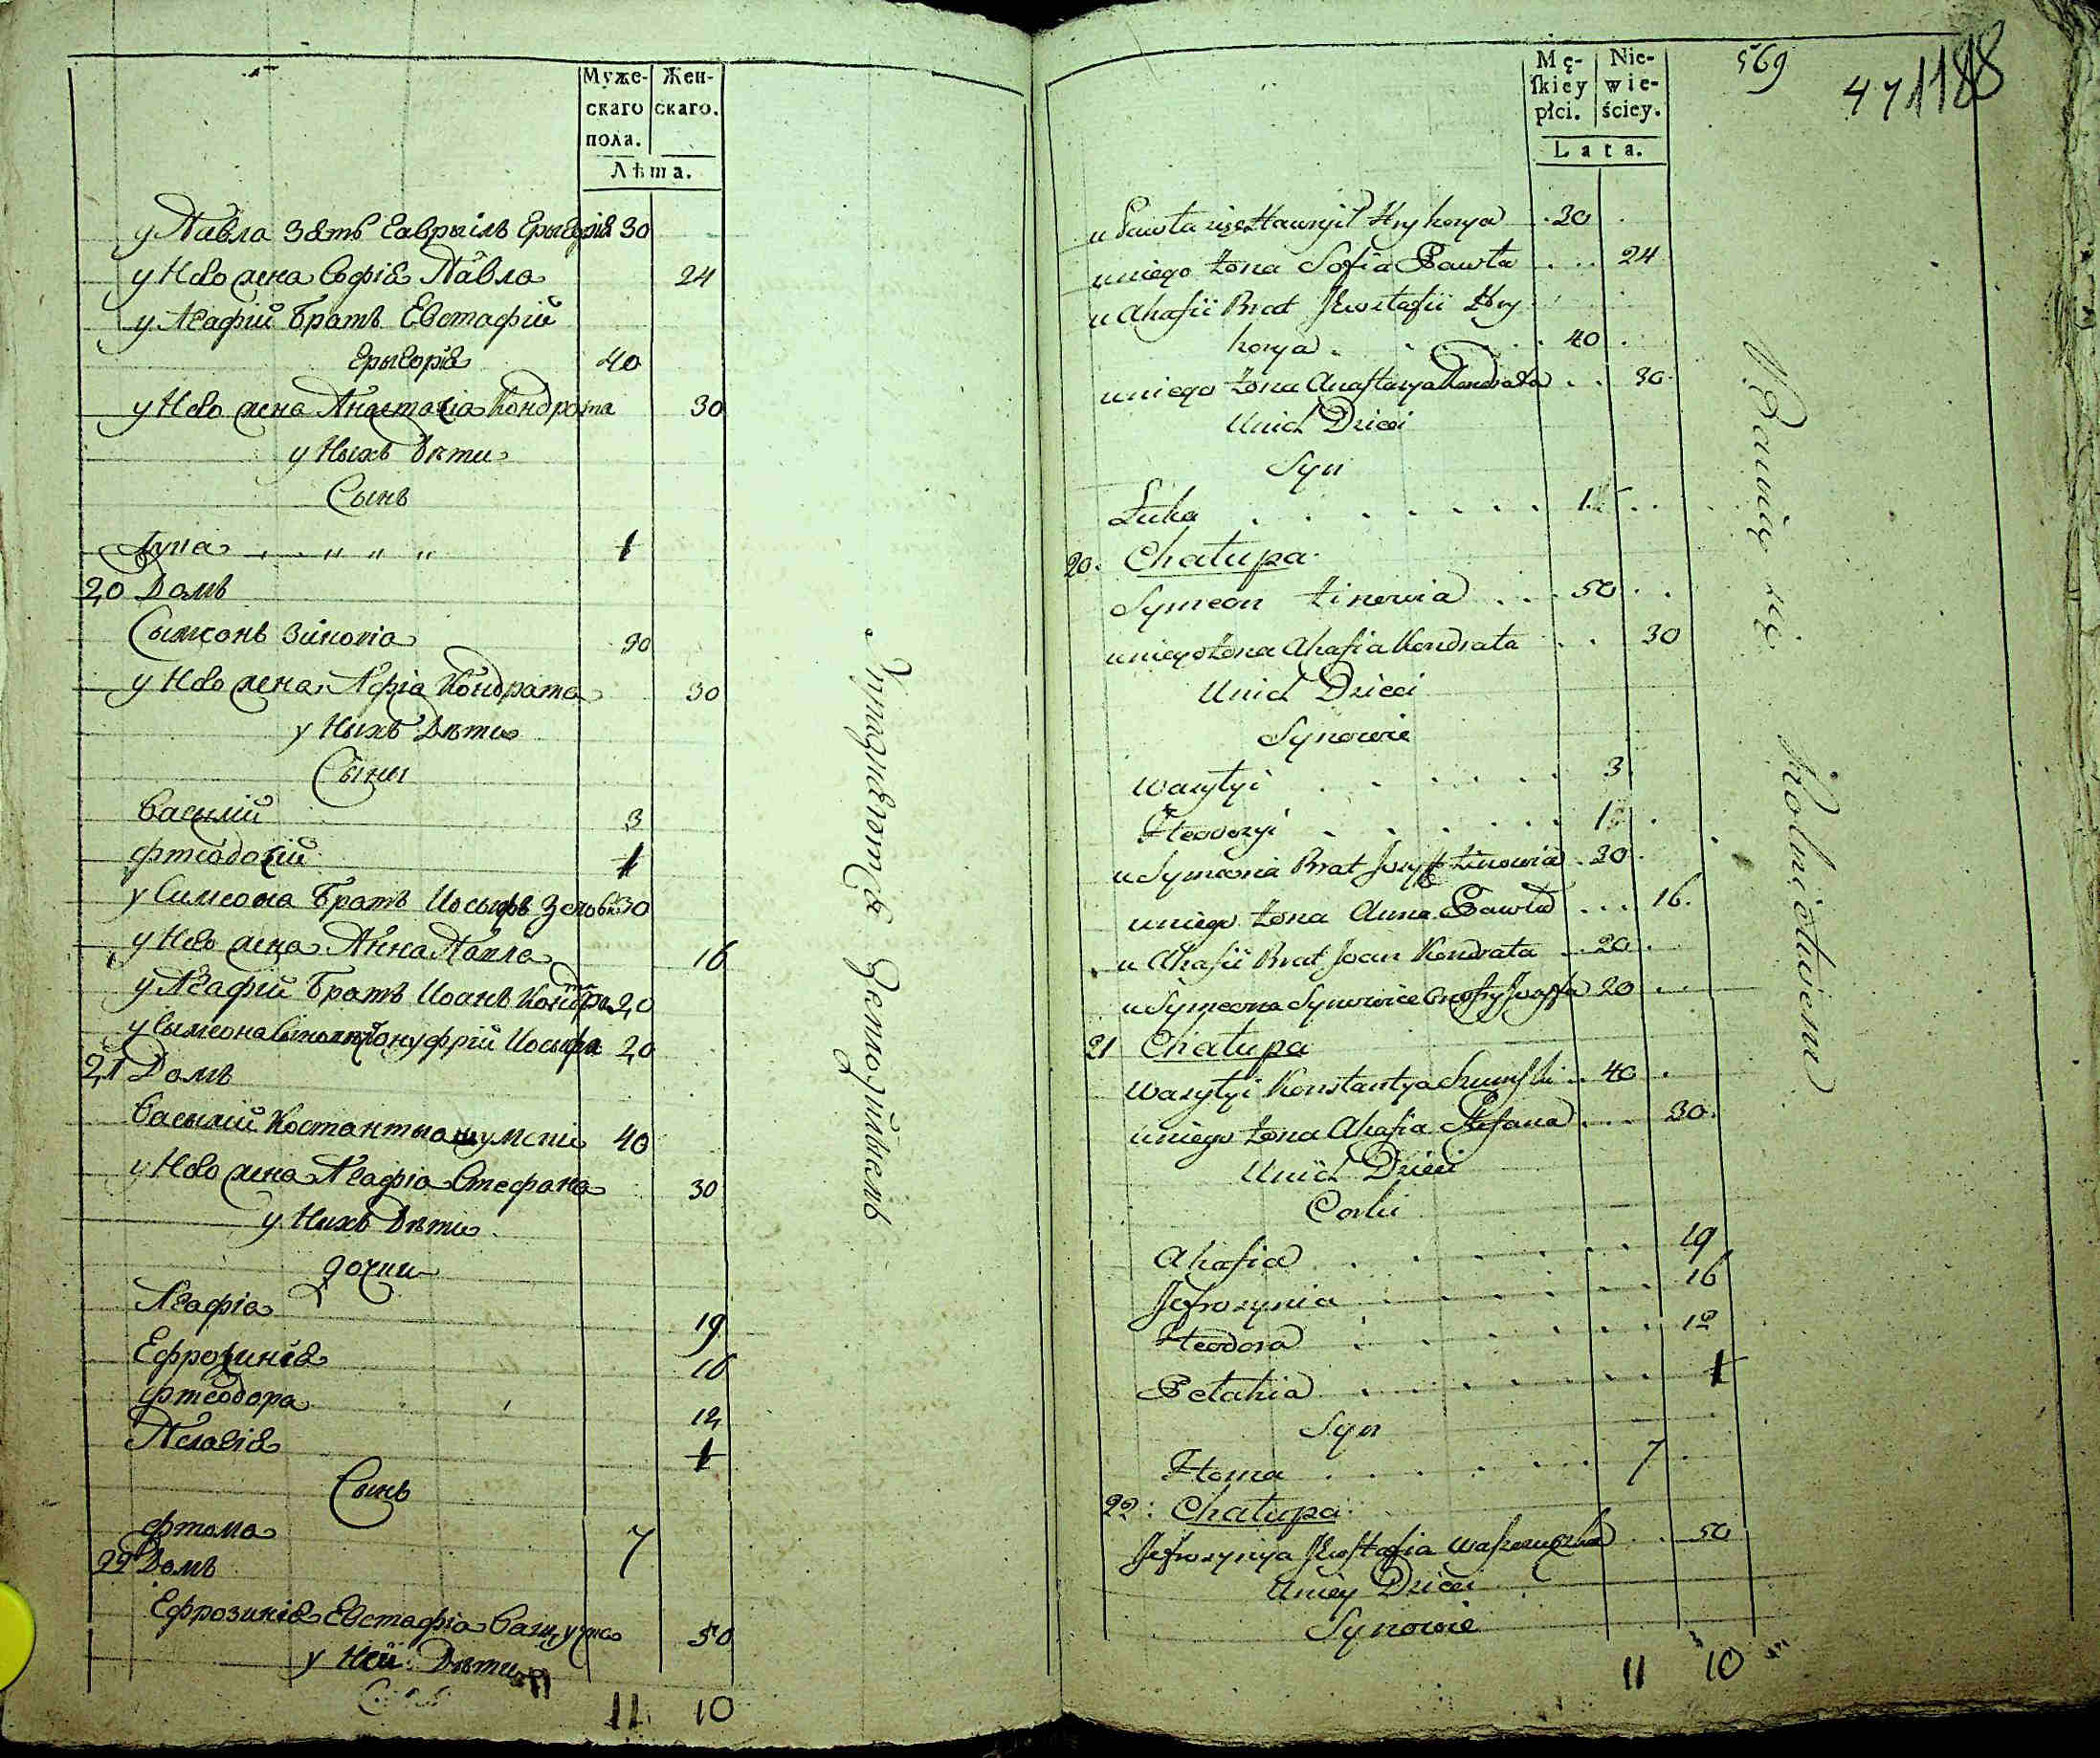 Муже-
скаго
пола.
Жен-
скаго.
Лѣта.
у Павла Зять Гаврыілъ Грыгорія 30
у Него жена Софія Павла 24
у Агафіи Братъ Евстафій
Грыгорія 40
у Него жена Анастасіа Кондрата 30
у Ныхъ Дѣти
Сынъ
Лука 1
20 Домъ
Сымеонъ Зиновіа 50
у Него жена Агафіа Кондрата 30
у Ныхъ Дѣти
Сыны
Васылій 3
Фтеодосій 1
у Симеона Братъ Иосыфъ 30
у Него жена Анна Павла 16
у Агафіи Братъ Иоанъ Кондра 20
у Сымеона Онуфрій Иосыфа 20
21 Домъ
Васылій Костантыа Шумскій 40
у Него жена Агафіа Стефана 30
у Ныхъ Дѣти
дочки
Агафіа 19
Ефрозинія 16
Фтеодора 12
Пелагія 1
Сынъ
Фтома 7
22 Домъ
Ефрозинія Евстафіа 50
у Неи Дѣти
11 10
Упражняются Земледѣліемъ
569
47 1188
Mę-
ſkiey
płci.
Nie-
wie-
ściey.
Lata.
u Pawła zięć Hawryił Hryhorya 30
u niego żona Sofia Pawła 24
u Ahafii Brat Jewstafii Hry
horya 40
u niego żona Anastasya Kondrata 30
Unich Dzieci
Syn
Łuka 1
20. Chałupa
Symeon Zinowia 50
u niego żona Ahafia Kondrata 30
Unich Dzieci
Synowie
Wasylyi 3
Fteodozyi 1
u Symeona Brat Jozyf Zinowia 30
u niego żona Anna Pawła 16.
u Ahafii Brat Joan Kondrata 20
u Symeona Synowiec Onofry Jozyfa 20
21 Chałupa
Wasylyi Konstantya Szumski 40
u niego żona Ahafia Stefana 30.
Unich Dzieci
Corki
Ahafia 19
Jefrozynia 16
Fteodora 12
Pelahia 1
Syn
Ftoma 7
22: Chałupa
Jefrozynya Jewstafia 50
Uniey Dzieci
Synowie
11 10
Bawią się Rolnictwem